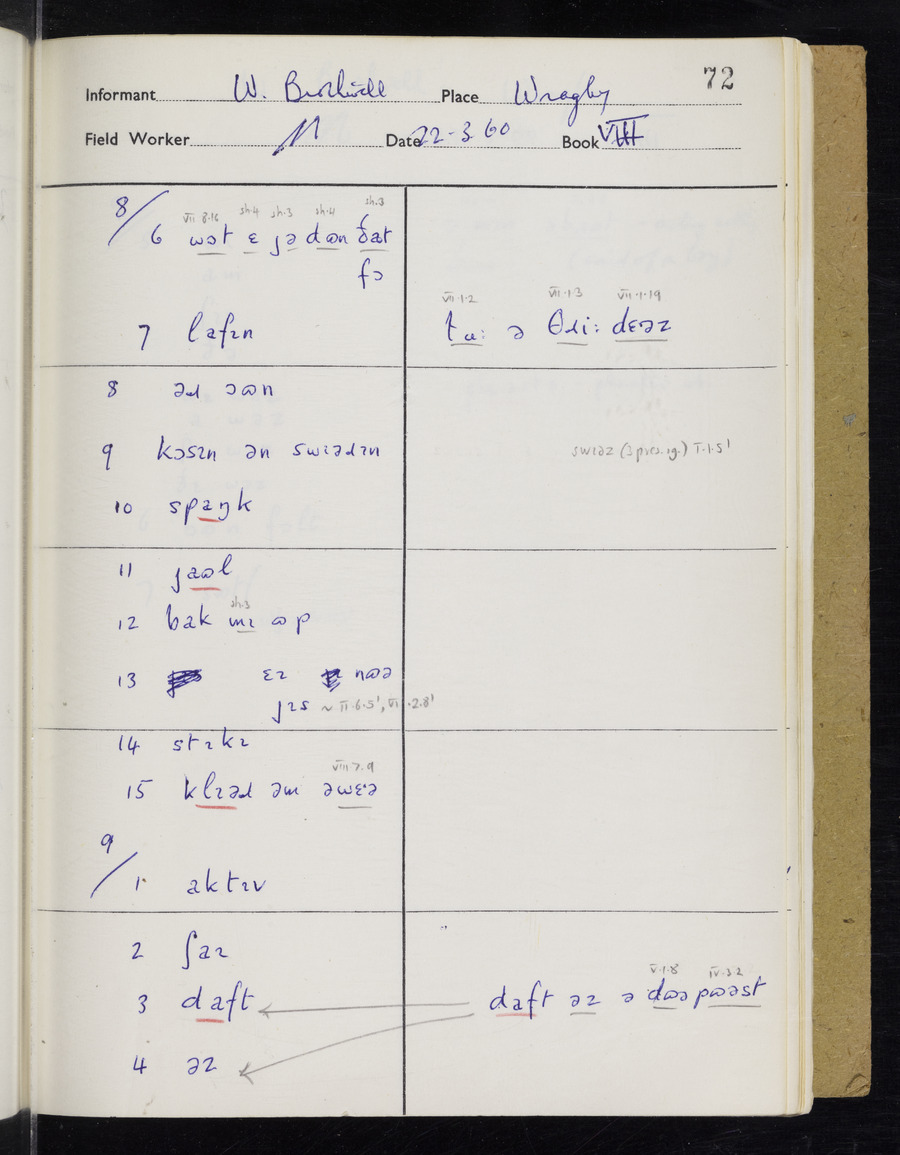 72
Informant W. Place Wragby
Field Worker Date 22-3 60 Book VIII
VII 8·16 sh·4 sh·3 sh·4 sh·3
8/6 wɔt ɛ jə dɷn ðat
fɔ
VII·1·2 VII·1·3 VII·1·19
7 lafɪn tɷ: ə θɹi: dɛəz
8 əɹ ɔɷn
9 kɔsɪn ən swɪəɹɪn swɪəz (3 pres. sg.) I·1·5'
10 spaŋk
11 jaɷl
sh·3
12 bak mɪ ɷp
13 ɛɪ nɷə
jɪs ~ II·6·5', VII·2·8'
14 stɪkɪ
VIII·7·9
15 klɪəɹ əm əwɛə
9/1· aktɪv
2 ʃaɪ
V·1·8 IV·3·2
3 daft daft əz ə dɷəpɷəst
4 əz